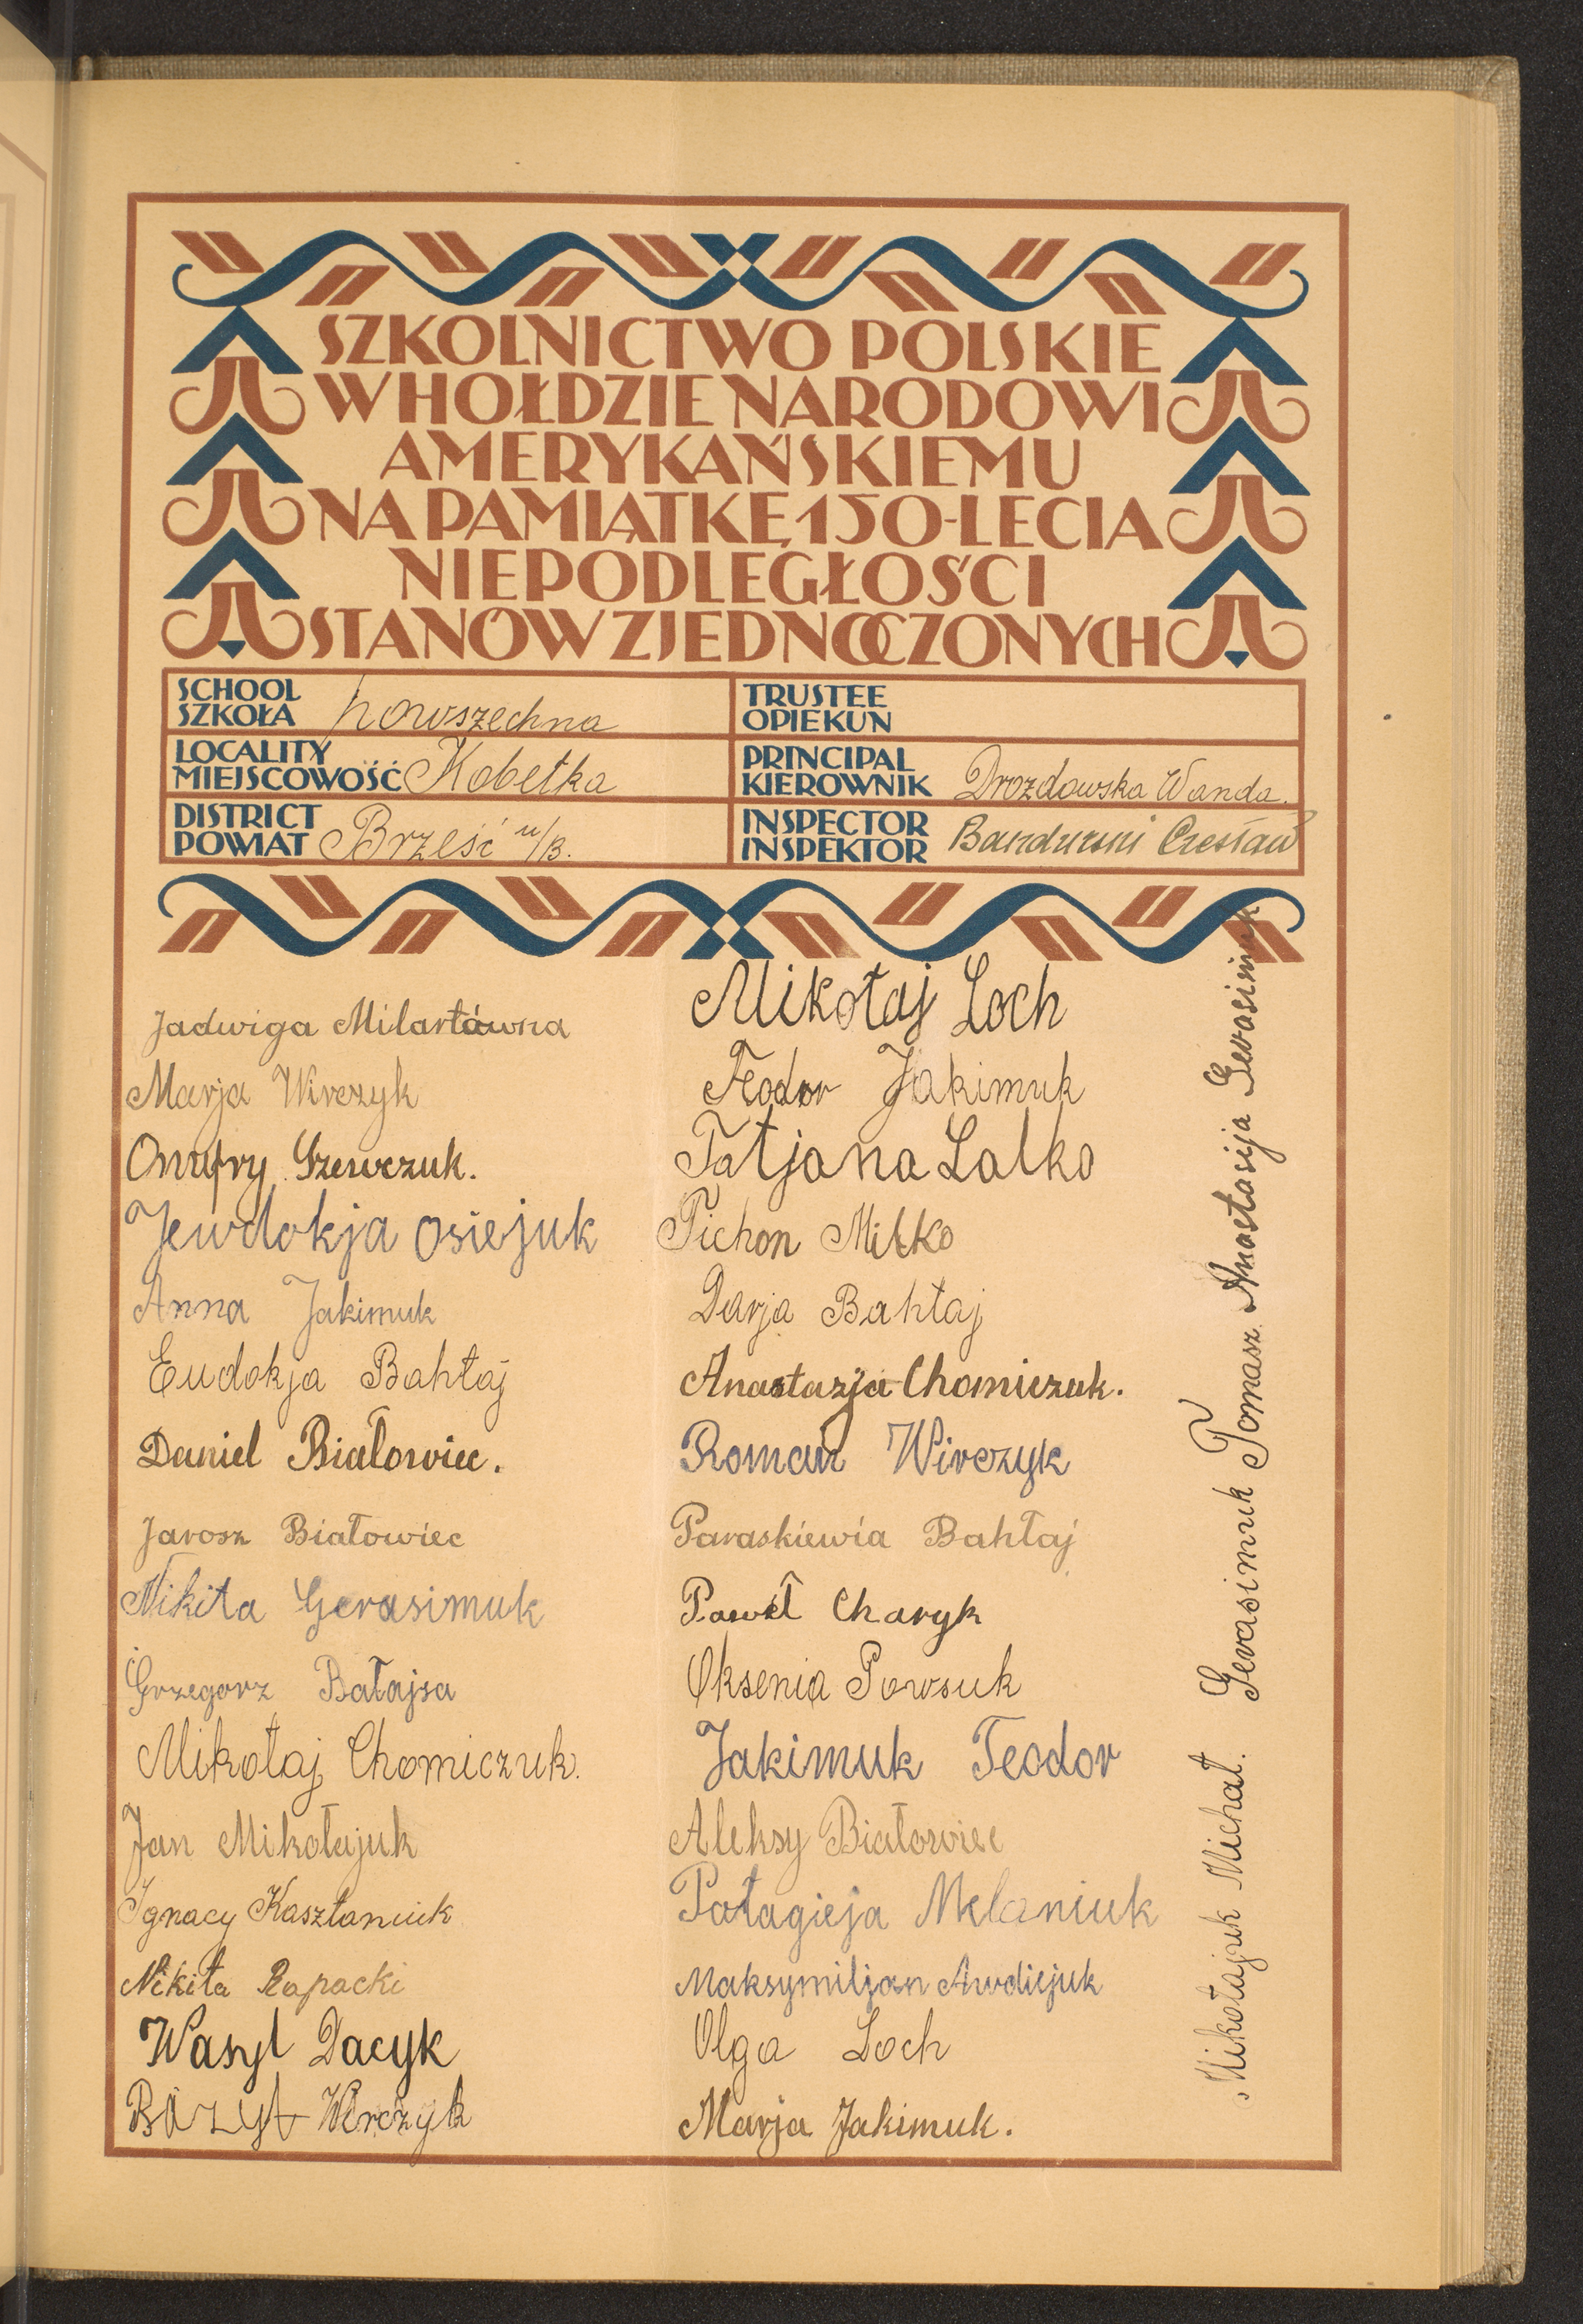 SZKOLNICTWO POLSKIE
W HOŁDZIE NARODOWI
AMERYKAŃSKIEMU
NA PAMIĄTKĘ 150-LECIA
NIEPODLEGŁOŚCI
STANÓW ZJEDNOCZONYCH
SCHOOL
SZKOŁA powszechna
TRUSTEE
OPIEKUN
LOCALITY
MIEJSCOWOŚĆ Kobełka
PRINCIPAL
KIEROWNIK Drozdowska Wanda.
DISTRICT
POWIAT Brześć n/B.
INSPECTOR
INSPEKTOR Bandurski Czesław
Jadwiga Milartówna
Marja Wirczyk
Onufry Szewczuk.
Jewdokja Osiejuk
Anna Jakimuk
Eudokja Bahłaj
Daniel Białowiec.
Jarosz Białowiec
Nikita Gerasimuk
Grzegorz Bałajsa
Mikołaj Chomiczuk.
Jan Mikołajuk
Ignacy Kasztaniuk
Nikita Rapacki
Wasyl Dacyk
Bazył Wirczyk
Mikołaj Loch
Feodor Jakimuk
Tatjana Lalko
Tichon Miłko
Darja Bahłaj
Anastazja Chomiczuk.
Roman Wirczyk
Paraskiewia Bahłaj
Paweł Charyk
Oksenia Powsuk
Jakimuk Teodor
Aleksy Białowiec
Pałagieja Melaniuk
Maksymiljan Awdiejuk
Olga Loch
Marja Jakimuk.
Mikołajuk Michał. Gerasimuk Tomasz. Anastasija Gerasimuk